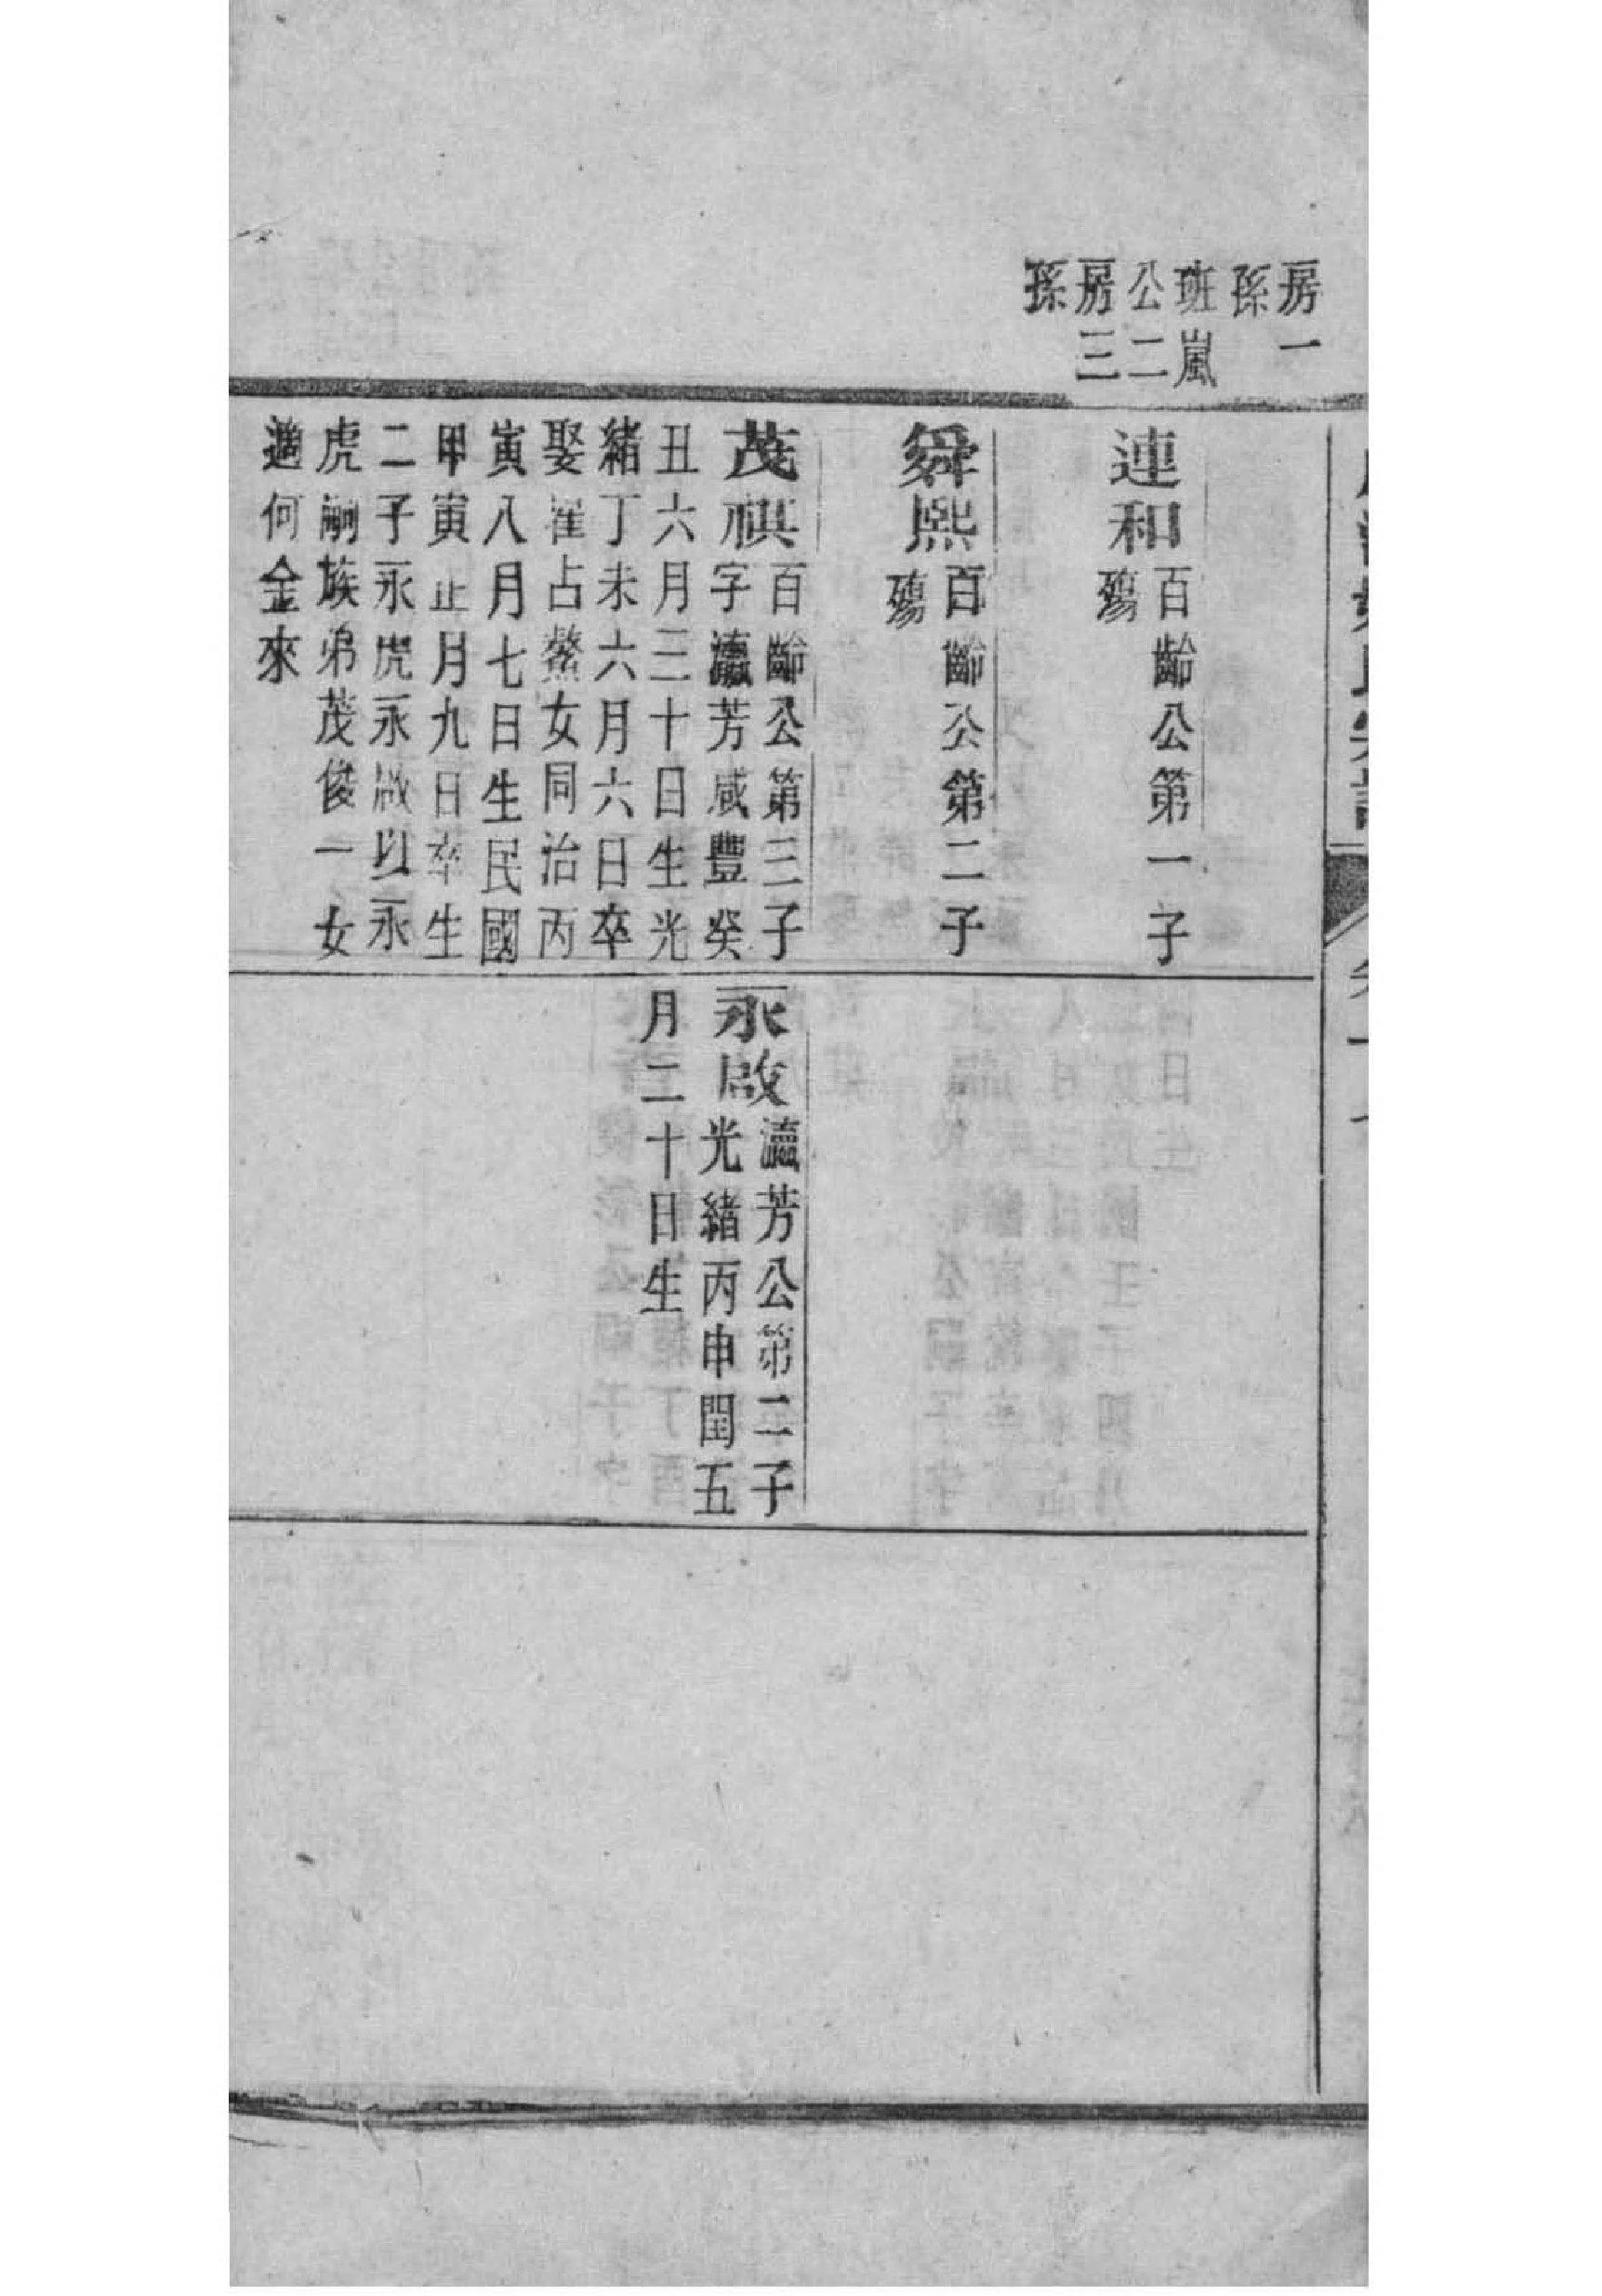 房一
孫
班嵐
公二
房三
孫
連和
百齡公第一子
殤
舜熙
百齡公第二子
殤
茂祺
百齡公第三子
字瀛芳咸豐癸
丑六月三十日生光
緒丁未六月六日卒
娶崔占鰲女同治丙
寅八月七日生民國
甲寅正月九日卒生
二子永虎永啟以永
虎嗣族弟茂俊一女
適何金來
永啟
瀛芳公第二子
光緒丙申閏五
月二十日生